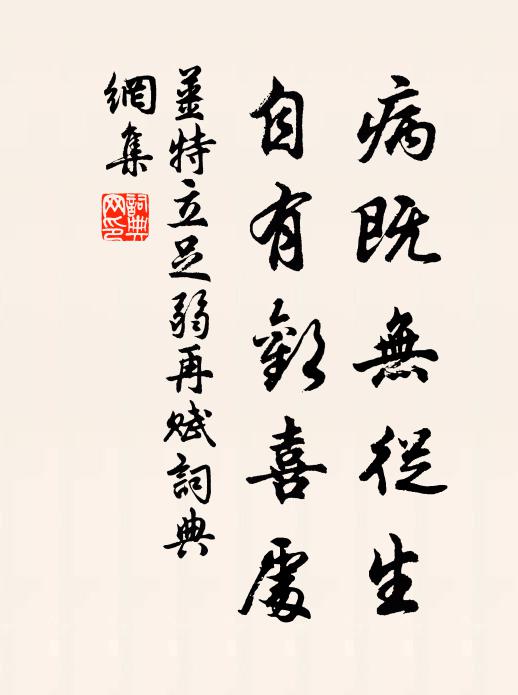 病既無從生
自有歡喜處
姜特立足弱再赋詞典
網集
詞典網印